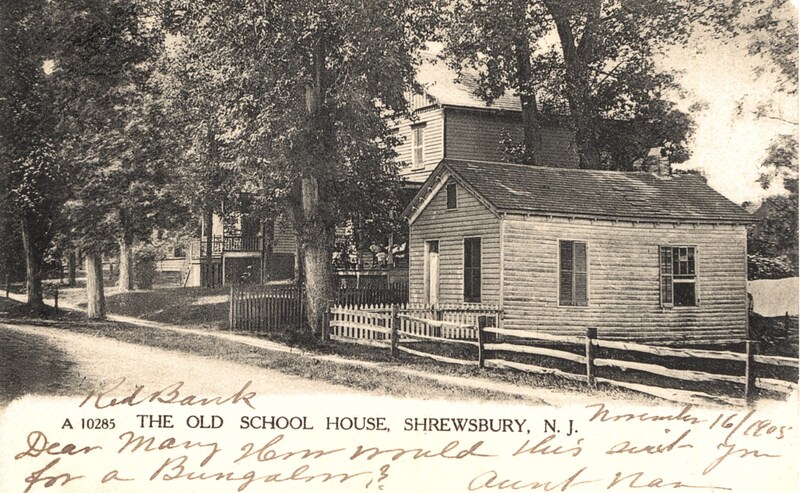 Red Bank
A 10285 THE OLD SCHOOL HOUSE, SHREWSBURY, N. J.
November 16/1905
Dear Mary How would this suit you
for a Bungalow? Aunt Nan